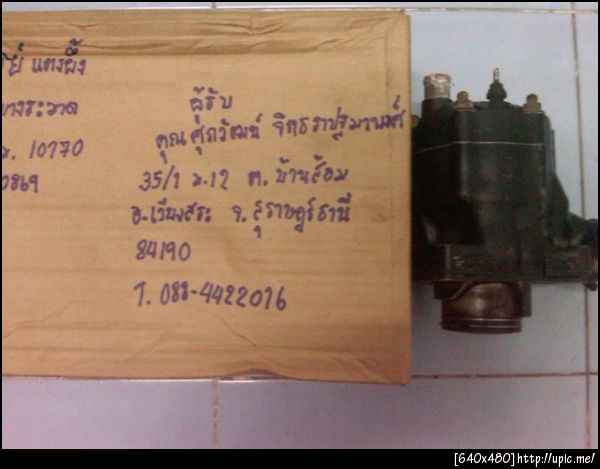 แตงผึ้ง
บางระมาด
10170
0869
ผู้รับ
คุณศุภวัฒน์
35/1 ม.12 ต.บ้านส้อง
อ.เวียงสระ จ.สุราษฎร์ธานี
84190
T. 088-4422016
[640x480]http://upic.me/